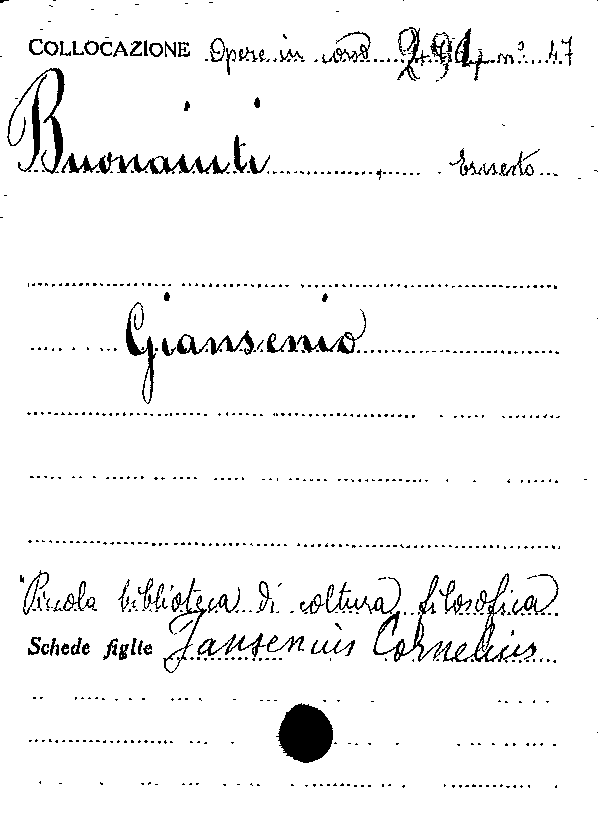 COLLOCAZIONE Opere in corso 294, n° 47
Buonaiuti, Ernesto
Giansenio
"Piccola biblioteca di coltura filosofica
Schede figlie Jansenius Cornelius